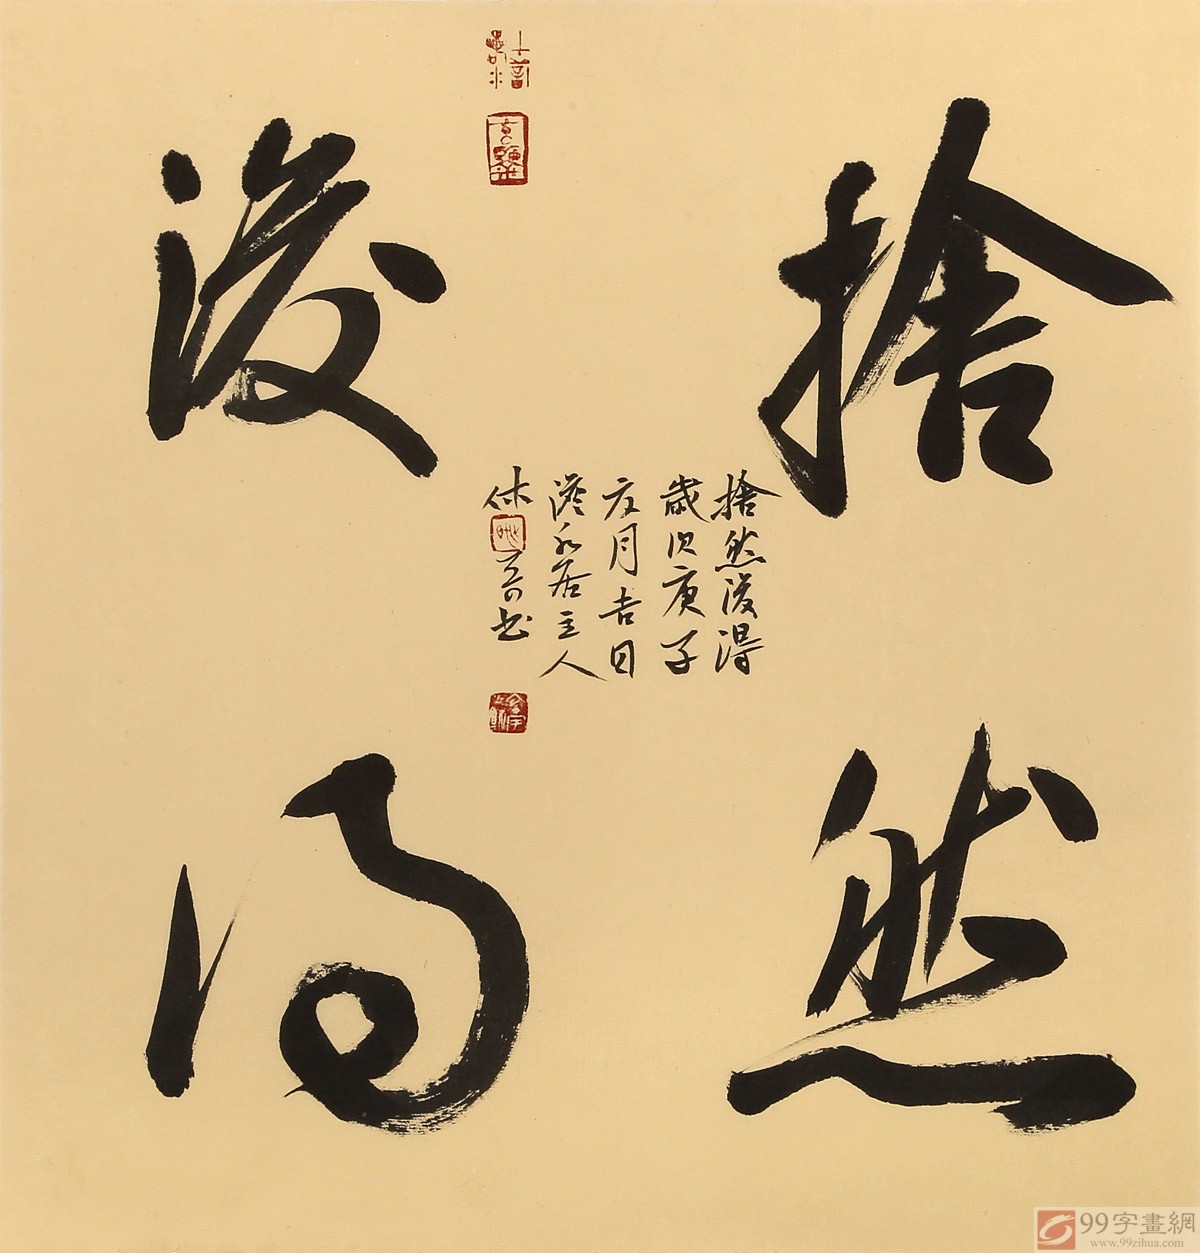 捨然
後得
捨然後得
歲次庚子
夏月吉日
人
休
書
99字畫網
www.99zihua.com